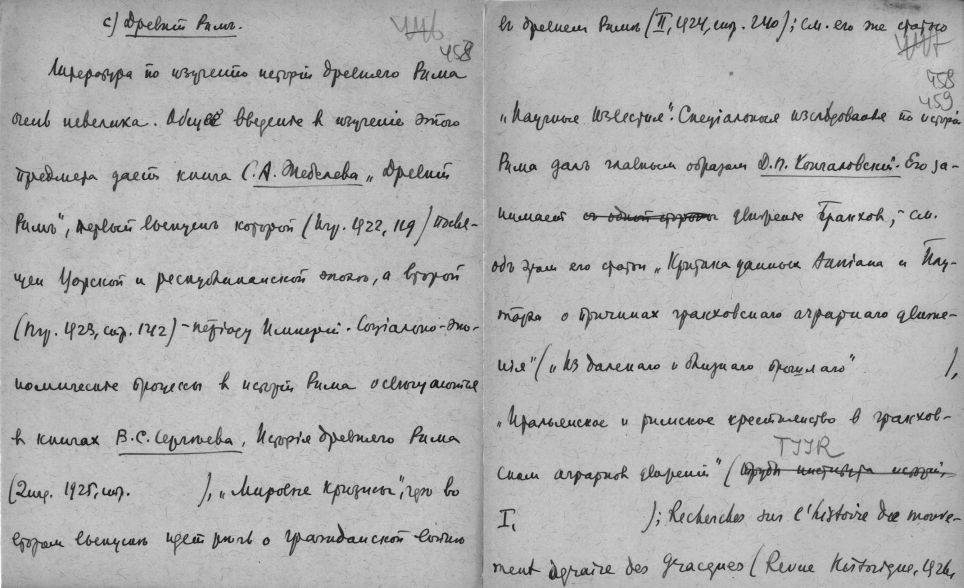 с) Древній Римъ.
458
Литература по изученію исторіи древняго Рима
очень невелика. Общее введеніе въ изученіе этого
предмета даетъ книга С. А. Жебелева „Древній
Римъ", первый выпускъ которой (Птг. 1922, 119) посвя-
щен Царской и республиканской эпохѣ, а второй
(Птг. 1923, стр. 142) – періоду Имперіи. Соціально-эко-
номическіе процессы въ исторіи Рима освѣщаются
въ книгах В. С. Сергѣева, Исторія древняго Рима
(2 изд. 1925, стр. ), „Мировые кризисы", гдѣ во
второмъ выпускѣ идетъ рѣчь о гражданской войнѣ
въ древнем Римѣ (II, 1924, стр. 240); см. его же статью
458
459
„Научные Известия". Спеціальныя изслѣдованія по исторіи
Рима далъ главным образом Д. П. Кончаловскій. Его за-
нимает съ одной стороны движеніе Гракхов, – см.
объ этом его статьи „Критика данных Аппіана и Плу-
тарха о причинах гракховскаго аграрнаго движе-
нія" („Из далекаго и близкаго прошлаго" ),
„Итальянское и римское крестьянство в гракхов-
ском аграрном движеніи" (Труды института исторіи,
I, ); Recherches sur l'histoire du mouve-
ment agraire des Gracques (Revue Historique, 1926,